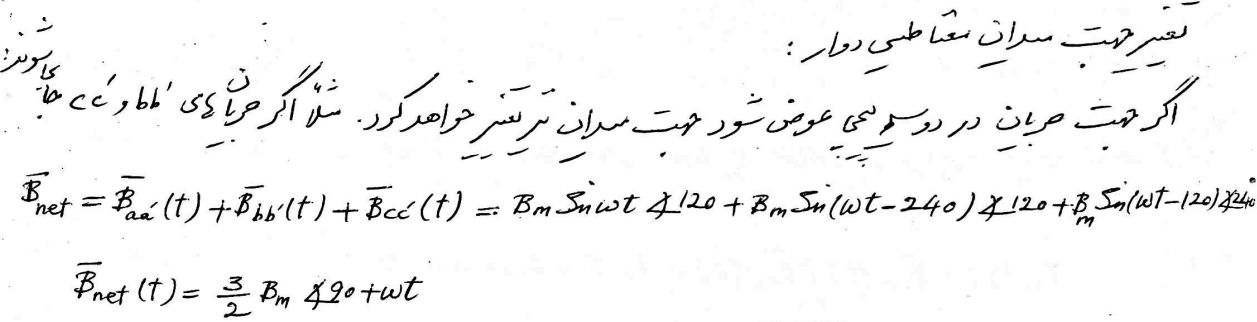 تغییر جهت میدان مغناطیسی دوار :
اگر جهت جریان در دو سیم پیچی عوض شود جهت میدان نیز تغییر خواهد کرد. مثلاً اگر جریان های bb' و cc' جابجا شوند:
B̅net = B̅aa'(t) + B̅bb'(t) + B̅cc'(t) = Bm Sin wt ∡120 + Bm Sin(wt-240) ∡120 + Bm Sin(wt-120) ∡240°
B̅net(t) = 3/2 Bm ∡90+wt